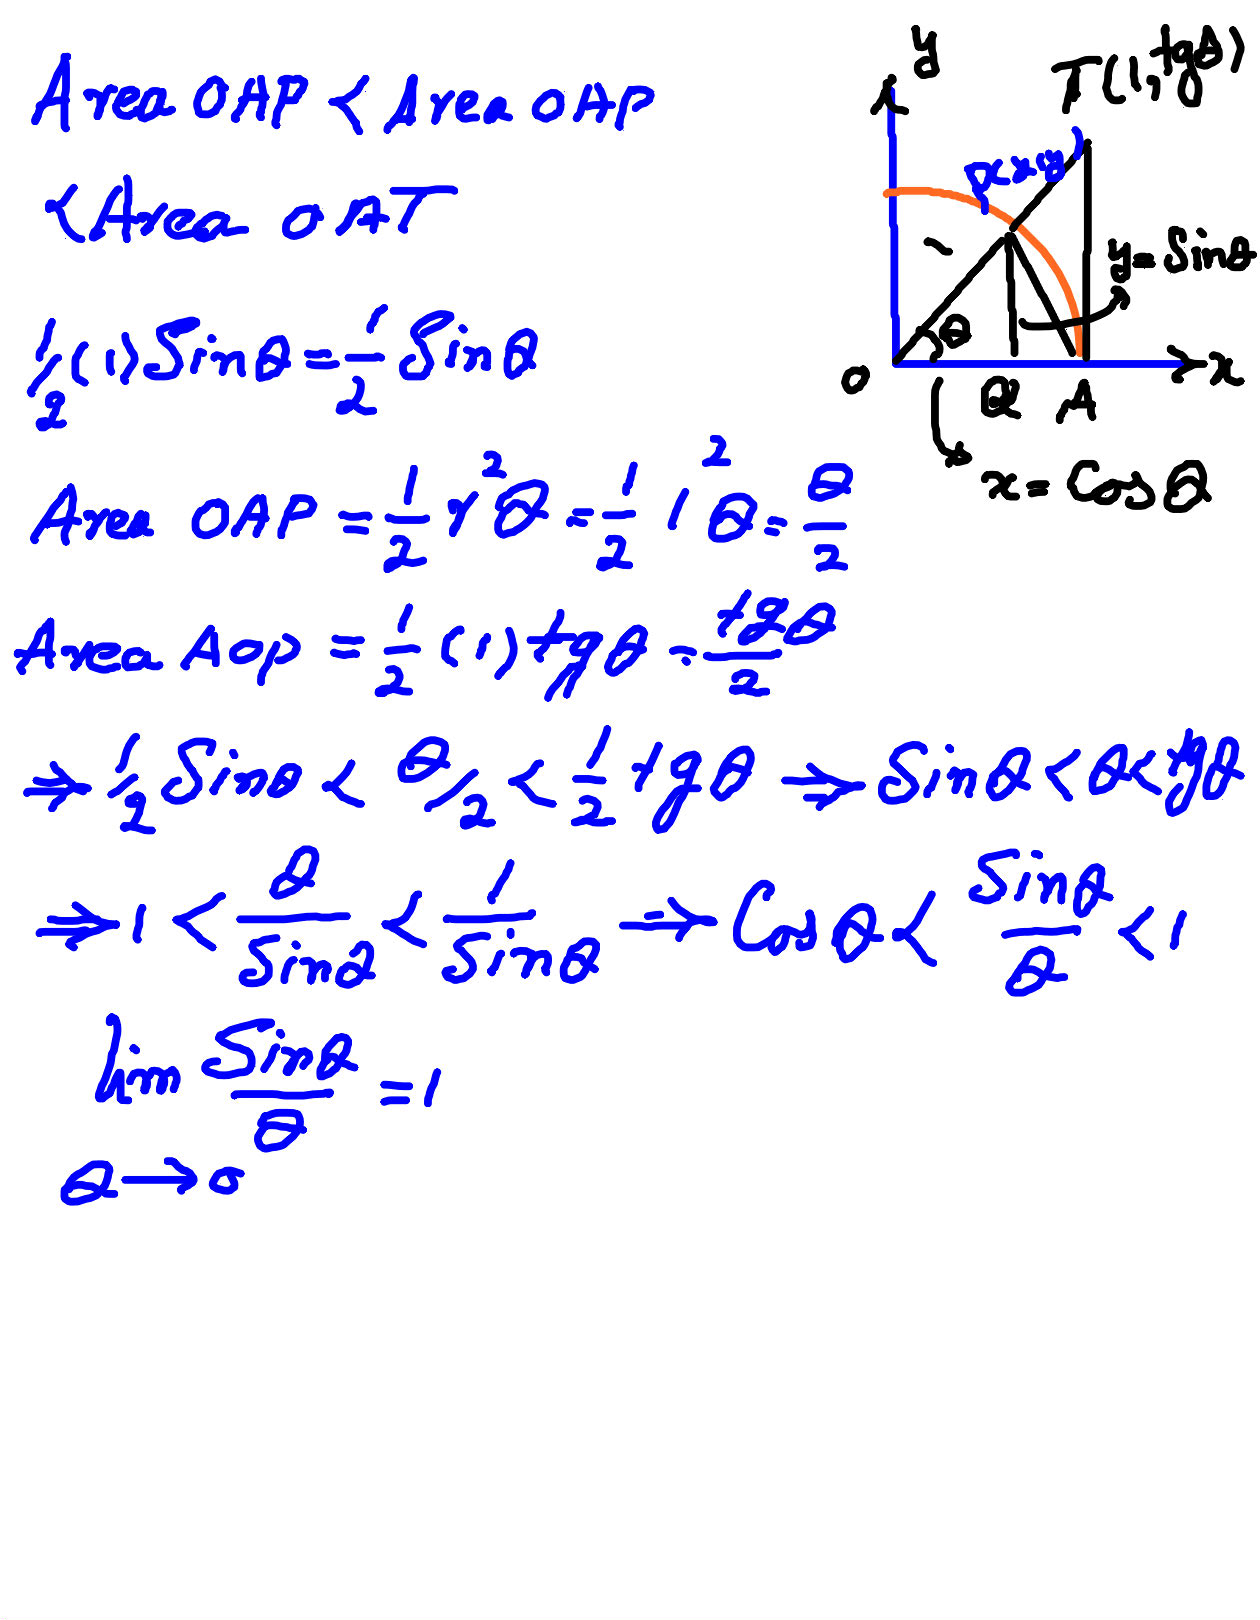 Area OAP < Area OAP
< Area OAT
1/2 (1) Sinθ = 1/2 Sinθ
Area OAP = 1/2 r²θ = 1/2 1²θ = θ/2
Area AOP = 1/2 (1) tgθ = tgθ/2
⇒ 1/2 Sinθ < θ/2 < 1/2 tgθ ⇒ Sinθ < θ < tgθ
⇒ 1 < θ/Sinθ < 1/Sinθ ⇒ Cosθ < Sinθ/θ < 1
lim Sinθ/θ = 1
θ → 0
y
T(1, tgθ)
y = Sinθ
θ
O
Q
A
x
x = Cosθ